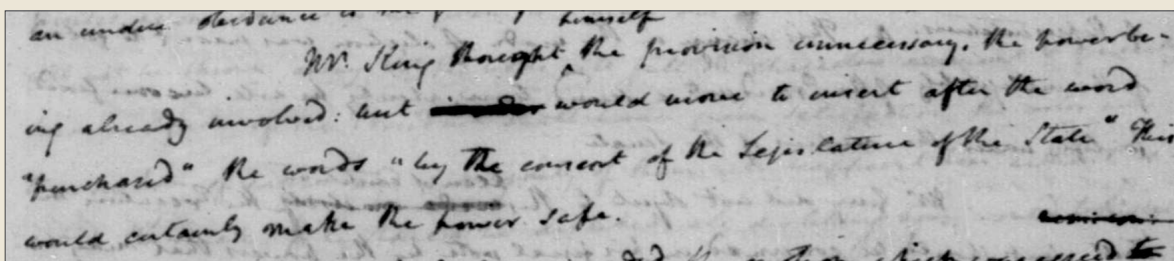 an undue
himself
Mr. King thought the provision unnecessary, the power be-
ing already involved: but would move to insert after the word
"purchased" the words "by the consent of the Legislature of the State" This
would certainly make the power safe.
which was agreed to